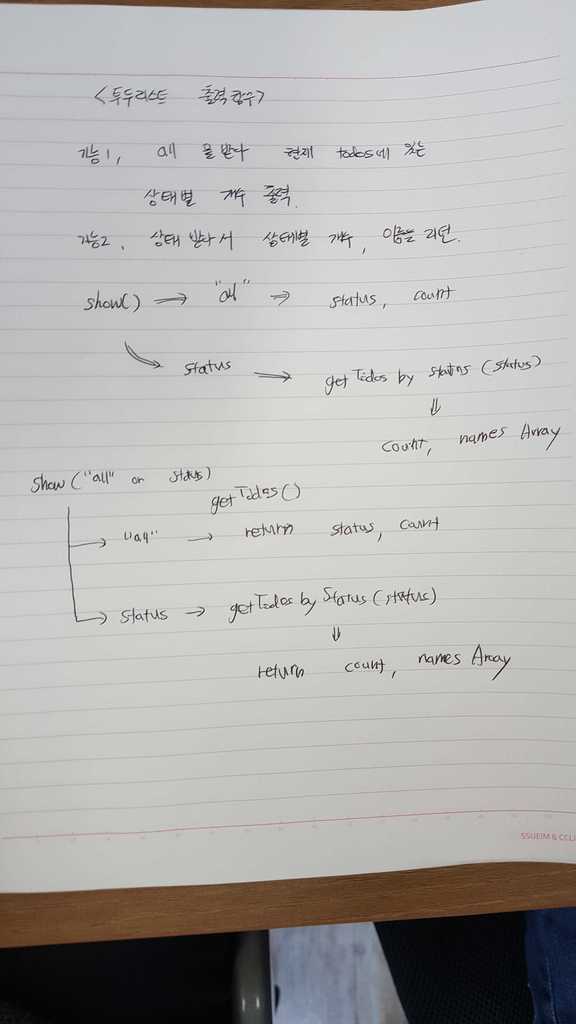 <투두리스트 출력함수>
기능1, all 을 받다 현재 todos에 있는
상태별 개수 출력.
기능2, 상태 받다서 상태별 개수, 이름들 리턴.
show() → "all" → status, count
status → get Todos by status (status)
⇓
count, names Array
show ("all" or status)
get Todos ()
"all" → return status, count
status → get Todos by Status (status)
⇓
return count, names Array
SSUEIM & CCLI